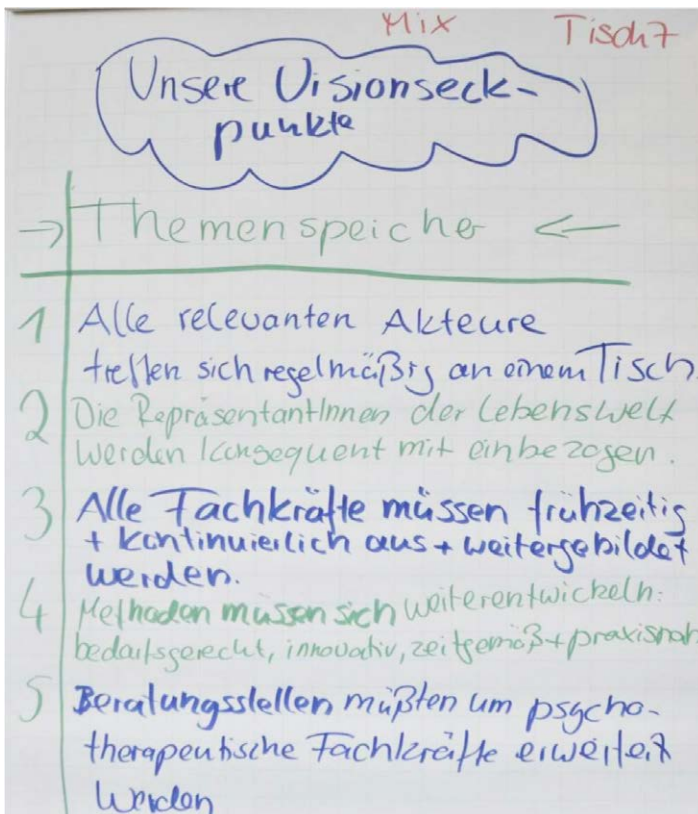 Mix Tisch 7
Unsere Visionseck-
punkte
→ Themenspeicher ←
1 Alle relevanten Akteure
treffen sich regelmäßig an einem Tisch
2 Die RepräsentantInnen der Lebenswelt
werden konsequent mit einbezogen.
3 Alle Fachkräfte müssen frühzeitig
+ kontinuierlich aus + weitergebildet
werden.
4 Methoden müssen sich weiterentwickeln:
bedarfsgerecht, innovativ, zeitgemäß + praxisnah
5 Beratungsstellen müßten um psycho-
therapeutische Fachkräfte erweitert
werden